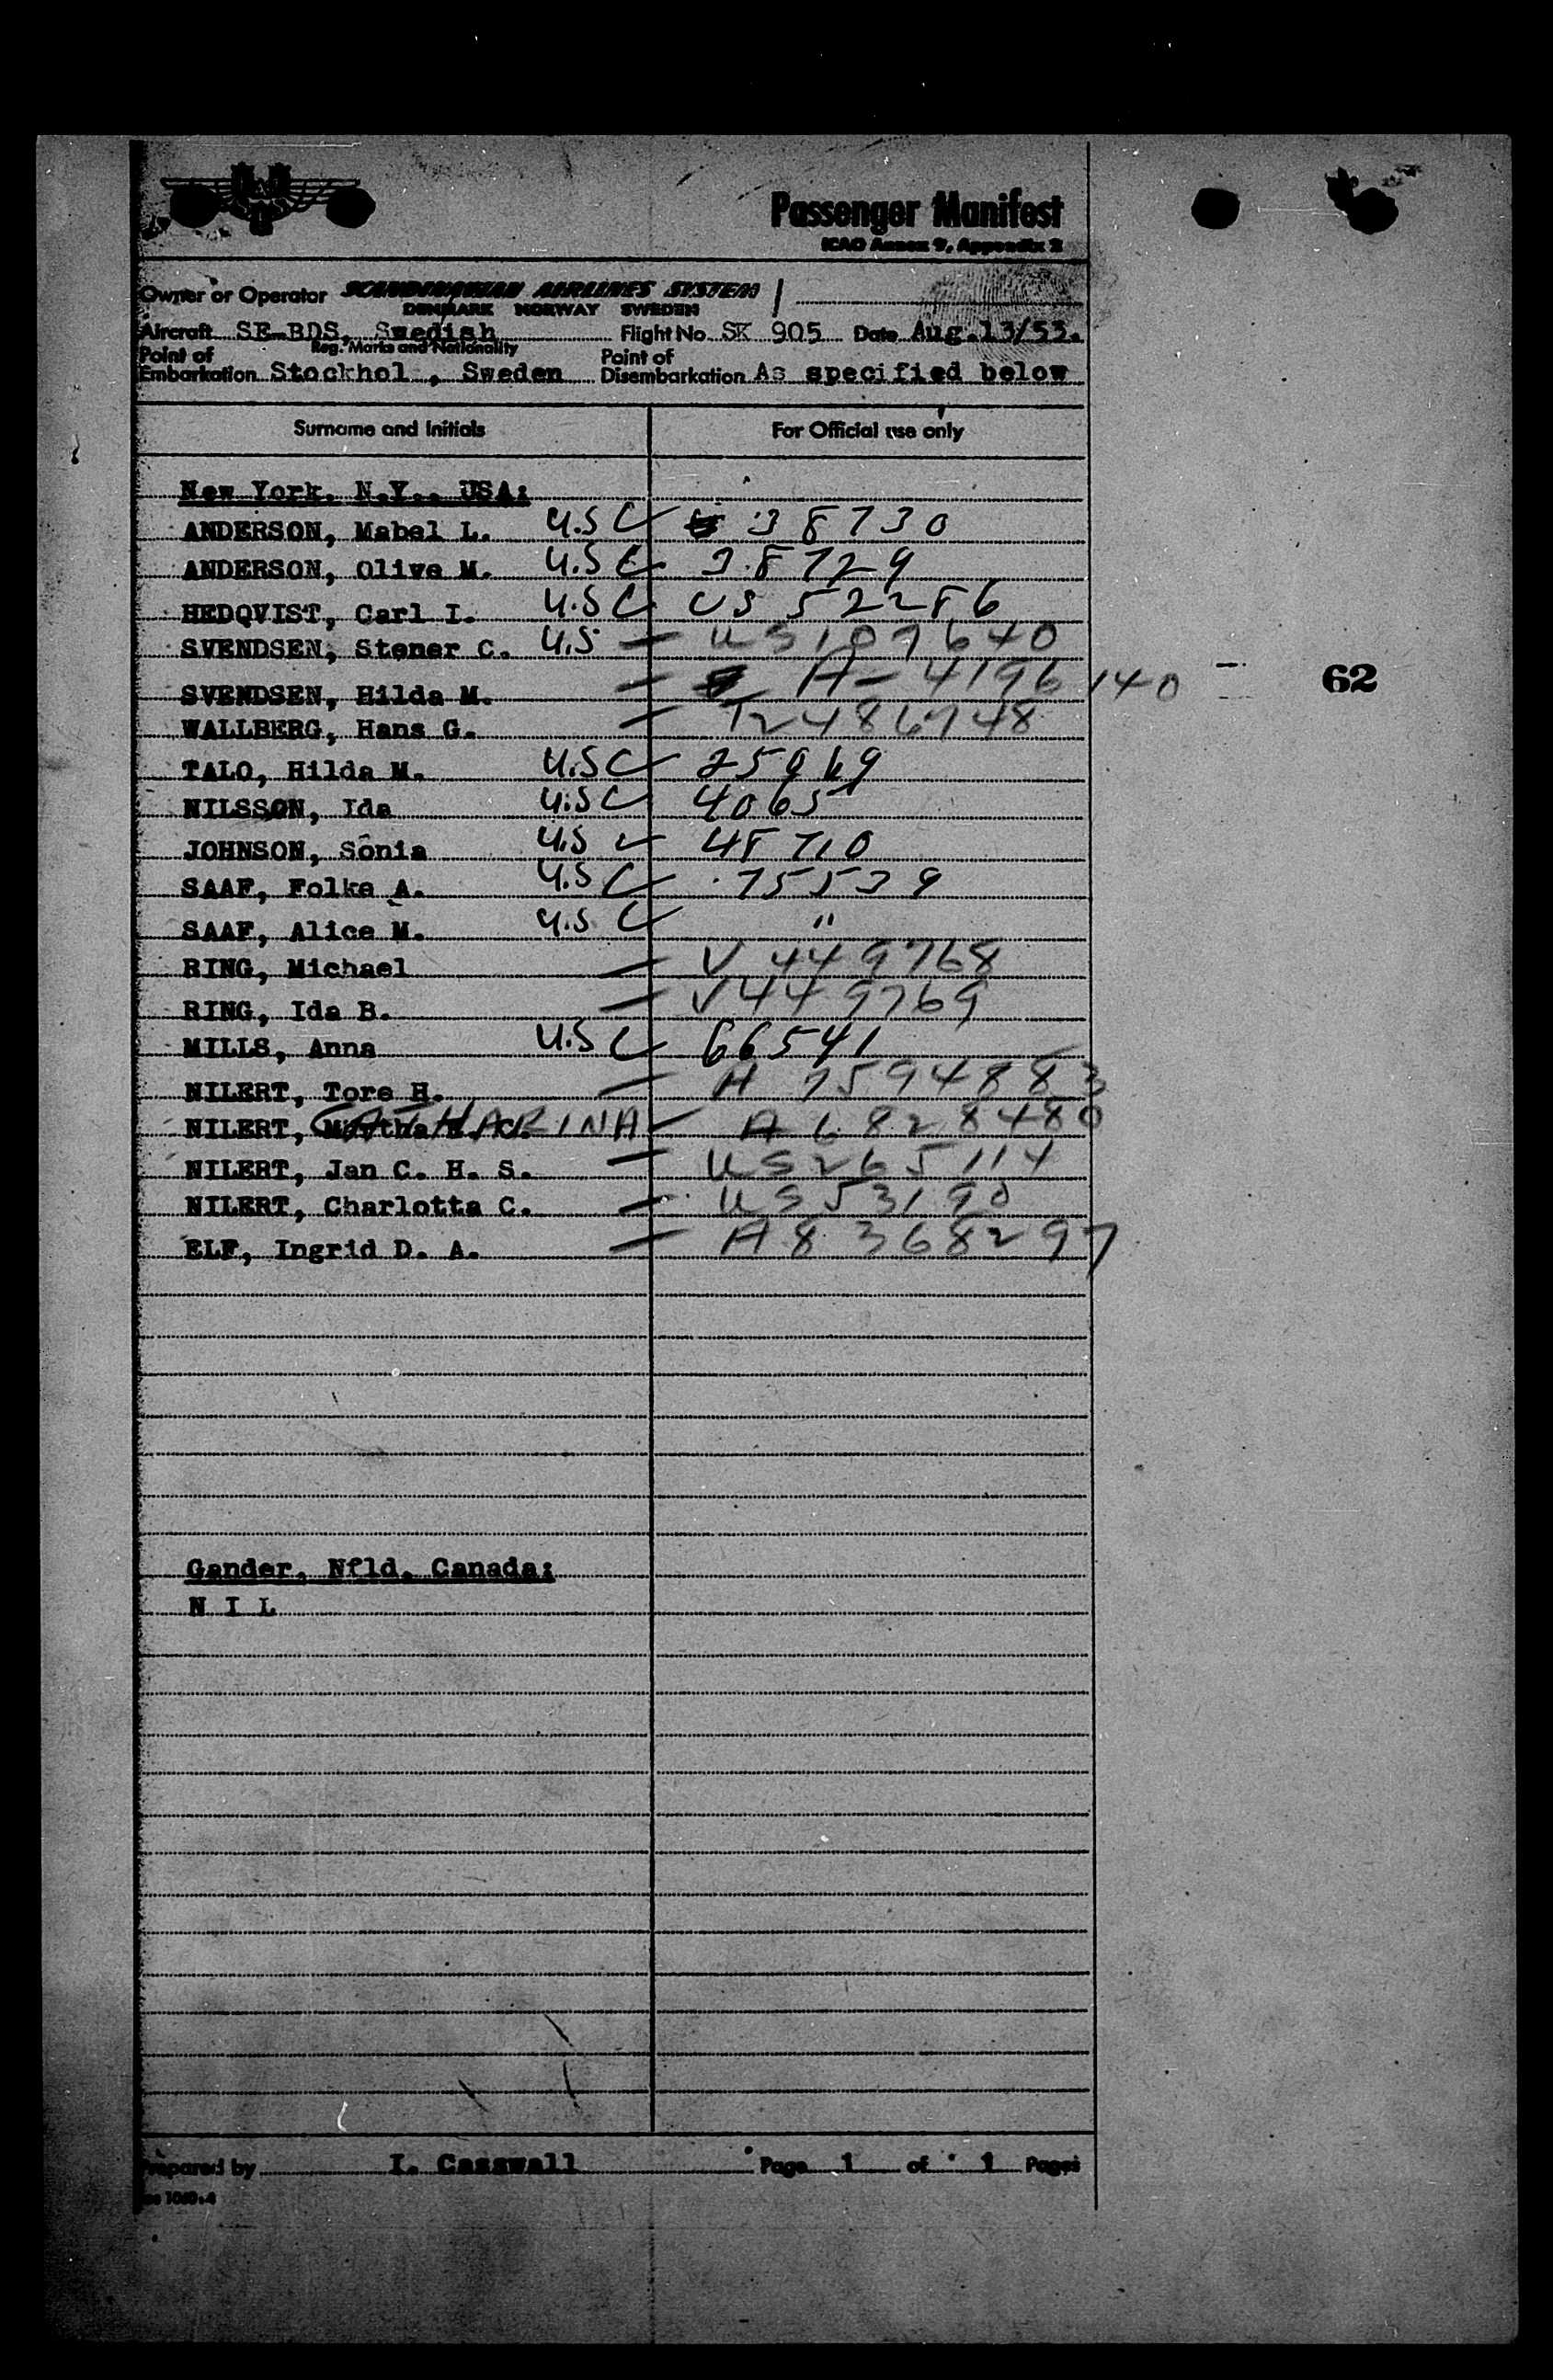 Passenger Manifest
ICAO Annex 9, Appendix 2
Owner or Operator SCANDINAVIAN AIRLINES SYSTEM
DENMARK NORWAY SWEDEN
Aircraft SE-BDS, Swedish Flight No. SK 905 Date Aug.13/53.
Reg. Marks and Nationality
Point of Embarkation Stockhol , Sweden Point of Disembarkation As specified below
Surname and Initials For Official use only
New York, N.Y., USA:
ANDERSON, Mabel L. U.S C 38730
ANDERSON, Olive M. U.S C 38729
HEDQVIST, Carl I. U.S C US 52286
SVENDSEN, Stener C. U.S — US 1097640
SVENDSEN, Hilda M. — A-4196140 — 62
WALLBERG, Hans G. — T2486748
TALO, Hilda M. U.S C 25969
NILSSON, Ida U.S C 4065
JOHNSON, Sonia U.S C 48710
SAAF, Folke A. U.S C 75539
SAAF, Alice M. U.S C "
RING, Michael — V 449768
RING, Ida B. — V449769
MILLS, Anna U.S C 66541
NILERT, Tore H. — A 7594883
NILERT, CATHARINA — A 6828480
NILERT, Jan C. H. S. — US265114
NILERT, Charlotta C. — US53190
ELF, Ingrid D. A. — A8368297
Gander, Nfld, Canada:
N I L
Prepared by I. Casswall Page 1 of 1 Pages